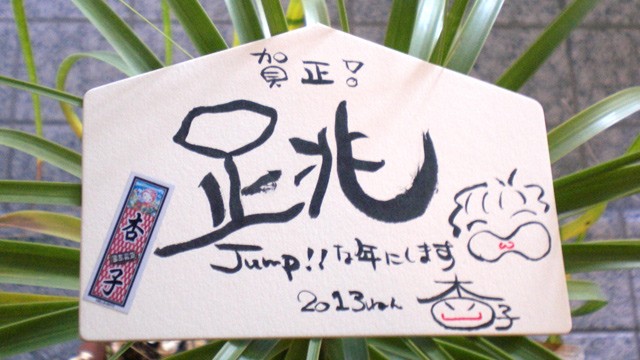 賀正!
跳
Jump!!な年にします
2013ねん
杏子
杏子